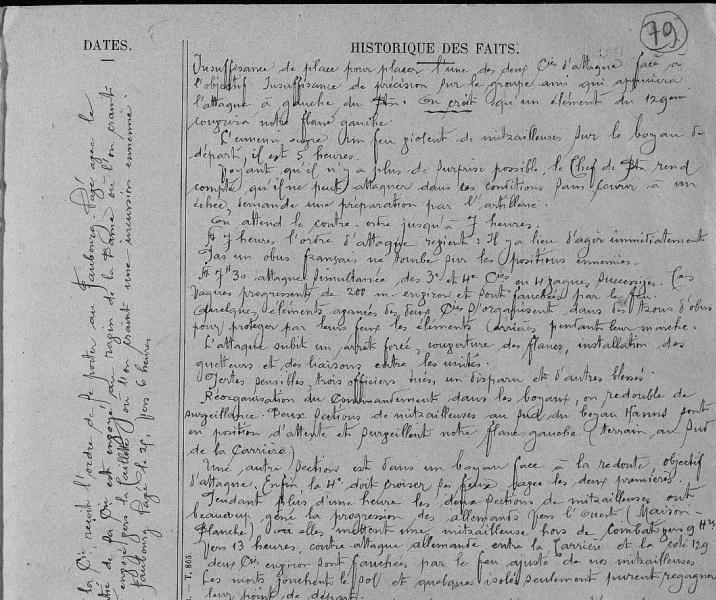 79
DATES.
HISTORIQUE DES FAITS.
Insuffisance de place pour placer l'une des deux Cies d'attaque face à
l'objectif. Insuffisance de précision sur le groupe ami qui appuiera
l'attaque à gauche du Btn. On croit qu'un élément du 129em
couvrira notre flanc gauche.
L'ennemi ouvre un feu violent de mitrailleuses sur le boyau de
départ, il est 5 heures.
Voyant qu'il n'y a plus de surprise possible, le Chef de Btn rend
compte qu'il ne peut attaquer dans ces conditions sans courir à un
échec, demande une préparation par l'artillerie.
On attend le contre-ordre jusqu'à 7 heures.
A 7 heures l'ordre d'attaque revient : Il y a lieu d'agir immédiatement
Pas un obus français ne tombe sur les positions ennemies.
A 7H30 attaque simultanée des 3e et 4e Cies en 4 vagues successives. Ces
vagues progressent de 200 m. environ et sont fauchées par le feu.
Quelques éléments avancés des deux Cies s'organisent dans des trous d'obus
pour protéger par leurs feux les éléments arrières pendant leur marche.
L'attaque subit un arrêt forcé, couverture des flancs, installation des
guetteurs et des liaisons entre les unités.
Pertes sensibles, trois officiers tués, un disparu et d'autres blessés.
Réorganisation du Commandement dans les boyaux, on redouble de
surveillance. Deux sections de mitrailleuses au sud du boyau Hanns sont
en position d'attente et surveillent notre flanc gauche (terrain au Sud
de la Carrière)
Une autre section est dans un boyau face à la redoute, objectif
d'attaque. Enfin la 4e doit croiser ses feux avec les deux premières.
Pendant plus d'une heure les deux sections de mitrailleuses ont
beaucoup gêné la progression des allemands vers l'Ouest (Maison-
Blanche) elles mettent une mitrailleuse hors de combat vers 9 Hres
Vers 13 heures, contre-attaque allemande entre la Carrière et la cote 129
deux Cies environ sont fauchées par le feu ajusté de nos mitrailleuses
Les morts jonchent le sol et quelques isolés seulement purent regagner
leur point de départ.
la Cie reçoit l'ordre de se porter au Faubourg Pavé avec le
de la Cie est envoyé au ravin de la Dame où l'on craint
envoyé vers la Caillette où l'on craint une incursion ennemie.
Faubourg Pavé le 25, vers 6 heures
T. 865.